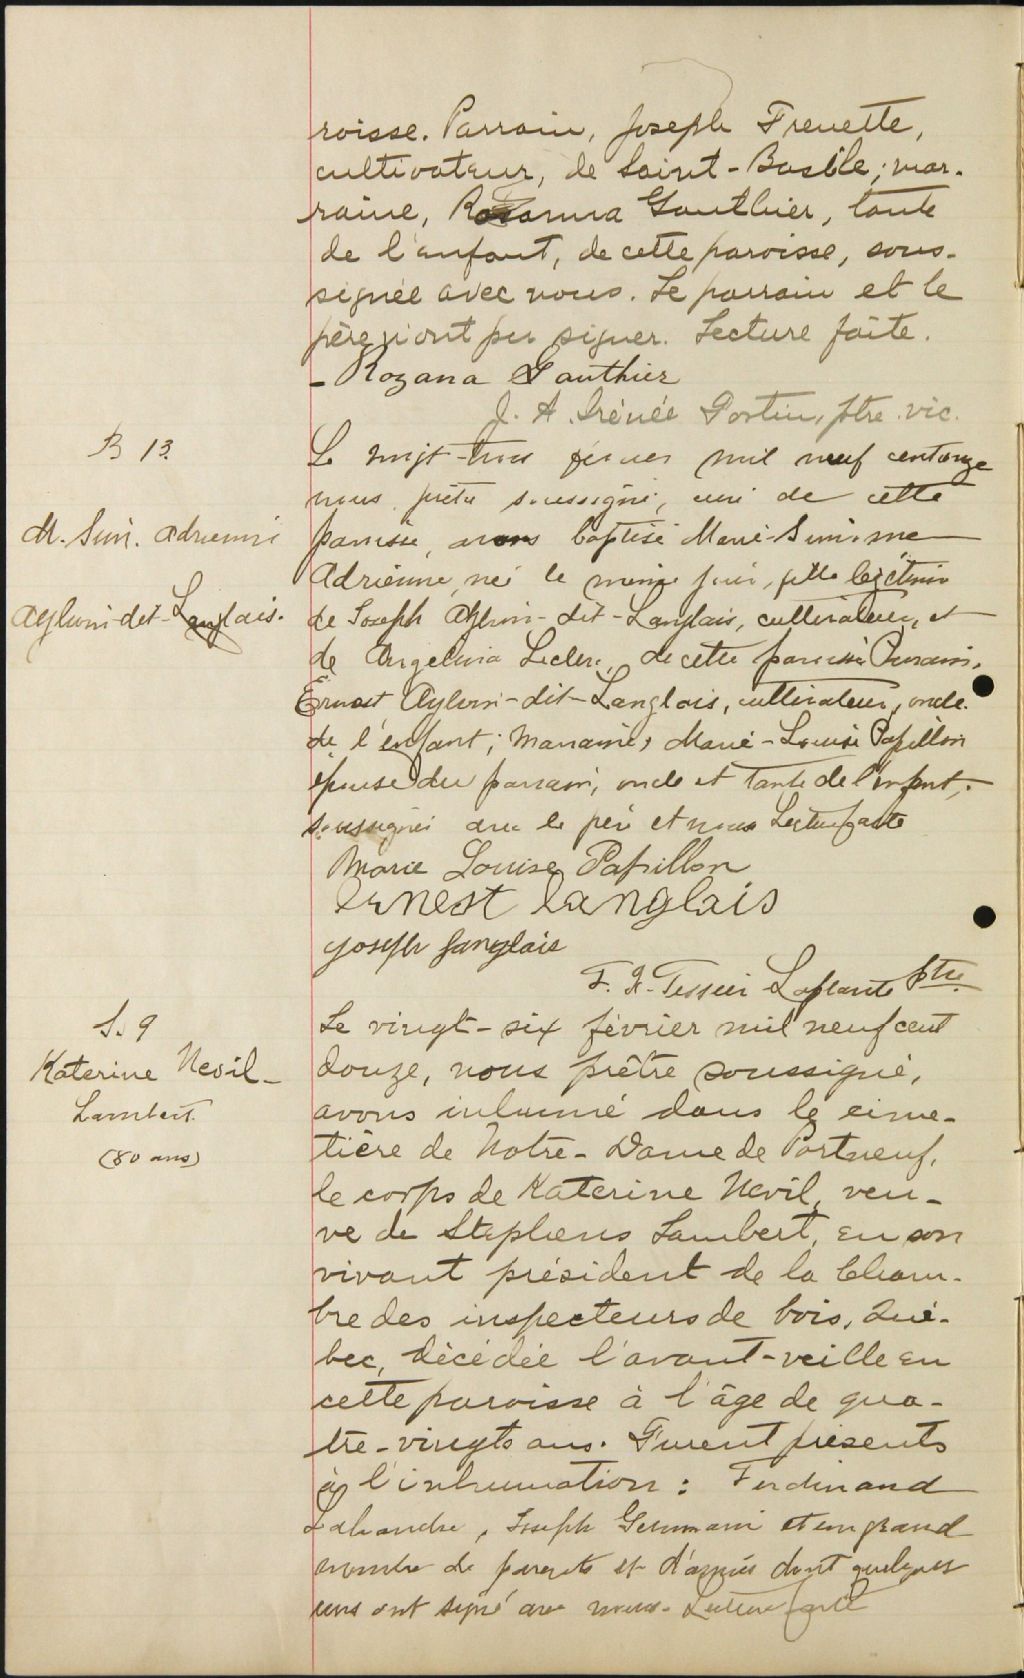 roisse. Parrain, Joseph Frenette,
cultivateur, de Saint-Basile; mar-
raine, Rosanna Gauthier, tante
de l'enfant, de cette paroisse, sous-
signée avec nous. Le parrain et le
père n'ont pu signer. Lecture faite.
- Rozana Gauthier
J. A. Irénée Fortin, ptre. vic.
B 13.
Le vingt-trois février mil neuf cent
nous prêtre soussigné, curé de cette
M. Sim. Adrienne
paroisse, avons baptisé Marie-Simonne
Adrienne, née le même jour, fille légitime
Aylwin-dit-Langlais.
de Joseph Aylwin-dit-Langlais, cultivateur, et
de Angelina Leclerc, de cette paroisse. Parrain,
Ernest Aylwin-dit-Langlais, cultivateur, oncle
de l'enfant; Marraine, Marie-Louise Papillon
épouse du parrain, oncle et tante de l'enfant,
soussignés avec le père et nous Lecture faite
Marie Louise Papillon
Ernest langlais
Joseph Langlais
F. X. Tessier Laplante Ptre
S. 9
Le vingt-six février mil neuf cent
Katerine Nevil-
douze, nous prêtre soussigné,
Lambert.
avons inhumé dans le cime-
(80 ans)
tière de Notre-Dame de Portneuf,
le corps de Katerine Nevil, veu-
ve de Stephens Lambert, en son
vivant président de la Cham-
bre des inspecteurs de bois, Qué-
bec, décédée l'avant-veille en
cette paroisse à l'âge de qua-
tre-vingts ans. Furent présents
à l'inhumation: Ferdinand
Joseph Germain et un grand
nombre de parents et d'amis dont quelques
uns ont signé avec nous. Lecture faite